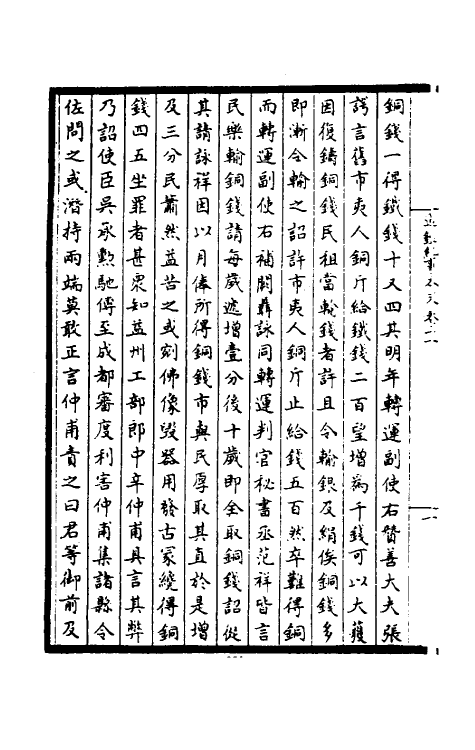 銅錢一得鐵錢十又四其明年轉運副使右贊善大夫張
諤言舊市夷人銅斤給鐵錢二百望增爲千錢可以大獲
因復鑄銅錢民租當輸錢者許且令輸銀及絹俟銅錢多
即漸令輸之詔許市夷人銅斤止給錢五百然卒難得銅
而轉運副使右補闕聶詠同轉運判官秘書丞范祥皆言
民樂輸銅錢請每歲遞增壹分後十歲即全取銅錢詔從
其請詠祥因以月俸所得銅錢市與民厚取其直於是增
及三分民蕭然益苦之或剜佛像毀器用發古冢纔得銅
錢四五坐罪者甚眾知益州工部郎中辛仲甫具言其弊
乃詔使臣吳承勲馳傳至成都審度利害仲甫集諸縣令
佐問之或潛持兩端莫敢正言仲甫責之曰君等御前及